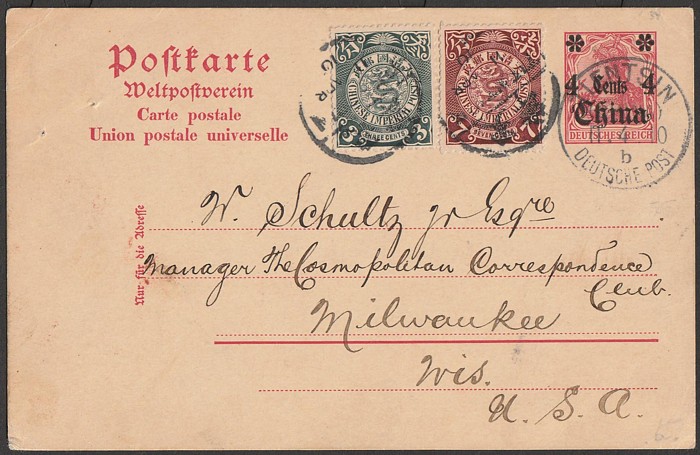 Postkarte
Weltpostverein
Carte postale
Union postale universelle
CHINESE IMPERIAL POST
3 THREE CENTS 3
CHINESE IMPERIAL POST
7 SEVEN CENTS 7
4 Cents 4
China
DEUTSCHES REICH
TIENTSIN
b
DEUTSCHE POST
Nur für die Adresse
W. Schultz jr Esqre
Manager The Cosmopolitan Correspondence
Club.
Milwaukee
Wis.
U. S. A.